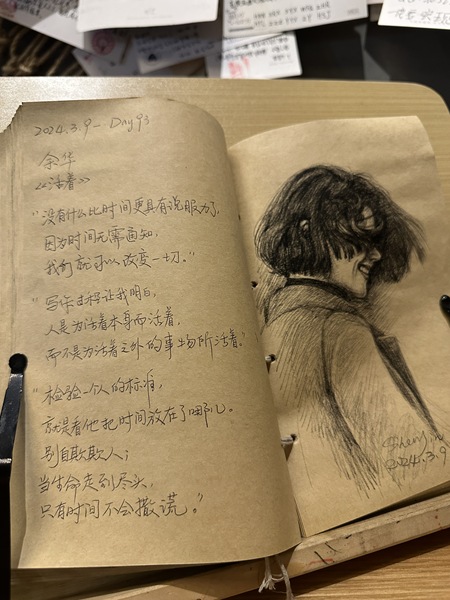 2024.3.9 — Day93
余华
《活着》
"没有什么比时间更具有说服力了,
因为时间无需通知,
我们就可以改变一切。"
"写作过程让我明白,
人是为活着本身而活着,
而不是为活着之外的事物所活着。"
"检验一个人的标准,
就是看他把时间放在了哪儿。
别自欺欺人;
当生命走到尽头,
只有时间不会撒谎。"
2024.3.9